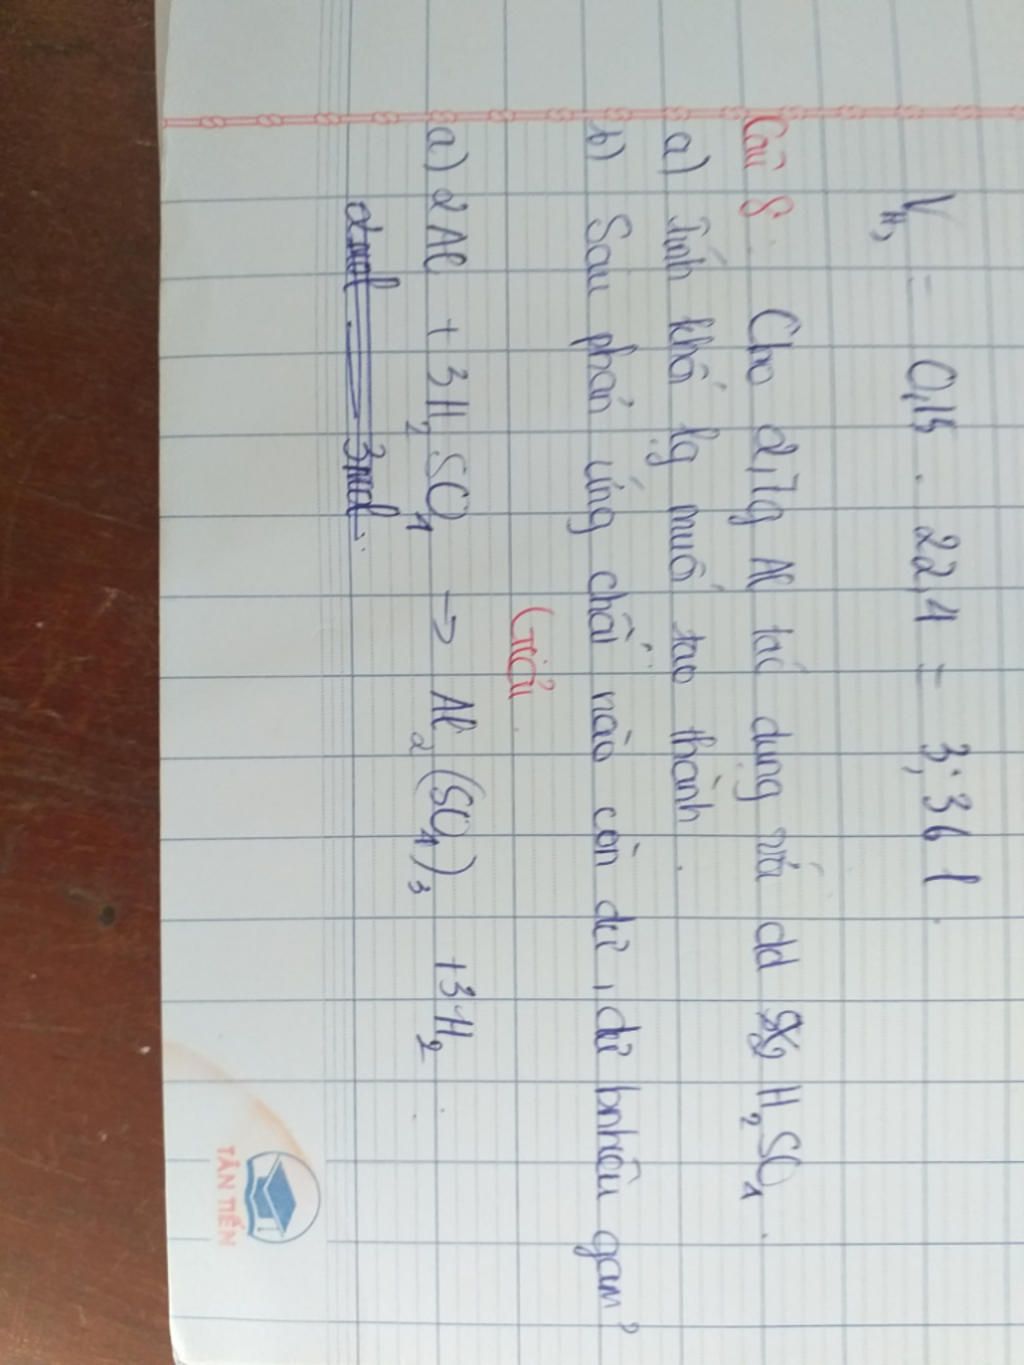 V H₂ = 0,15 . 22,4 = 3,36 l.
Câu 8. Cho 2,7g Al tác dụng với dd H₂SO₄.
a) Tính khối lg muối tạo thành.
b) Sau phản ứng chất nào còn dư, dư bnhiêu gam?
Giải
a) 2Al + 3H₂SO₄ → Al₂(SO₄)₃ + 3H₂
2mol 3mol
TÂN TIẾN